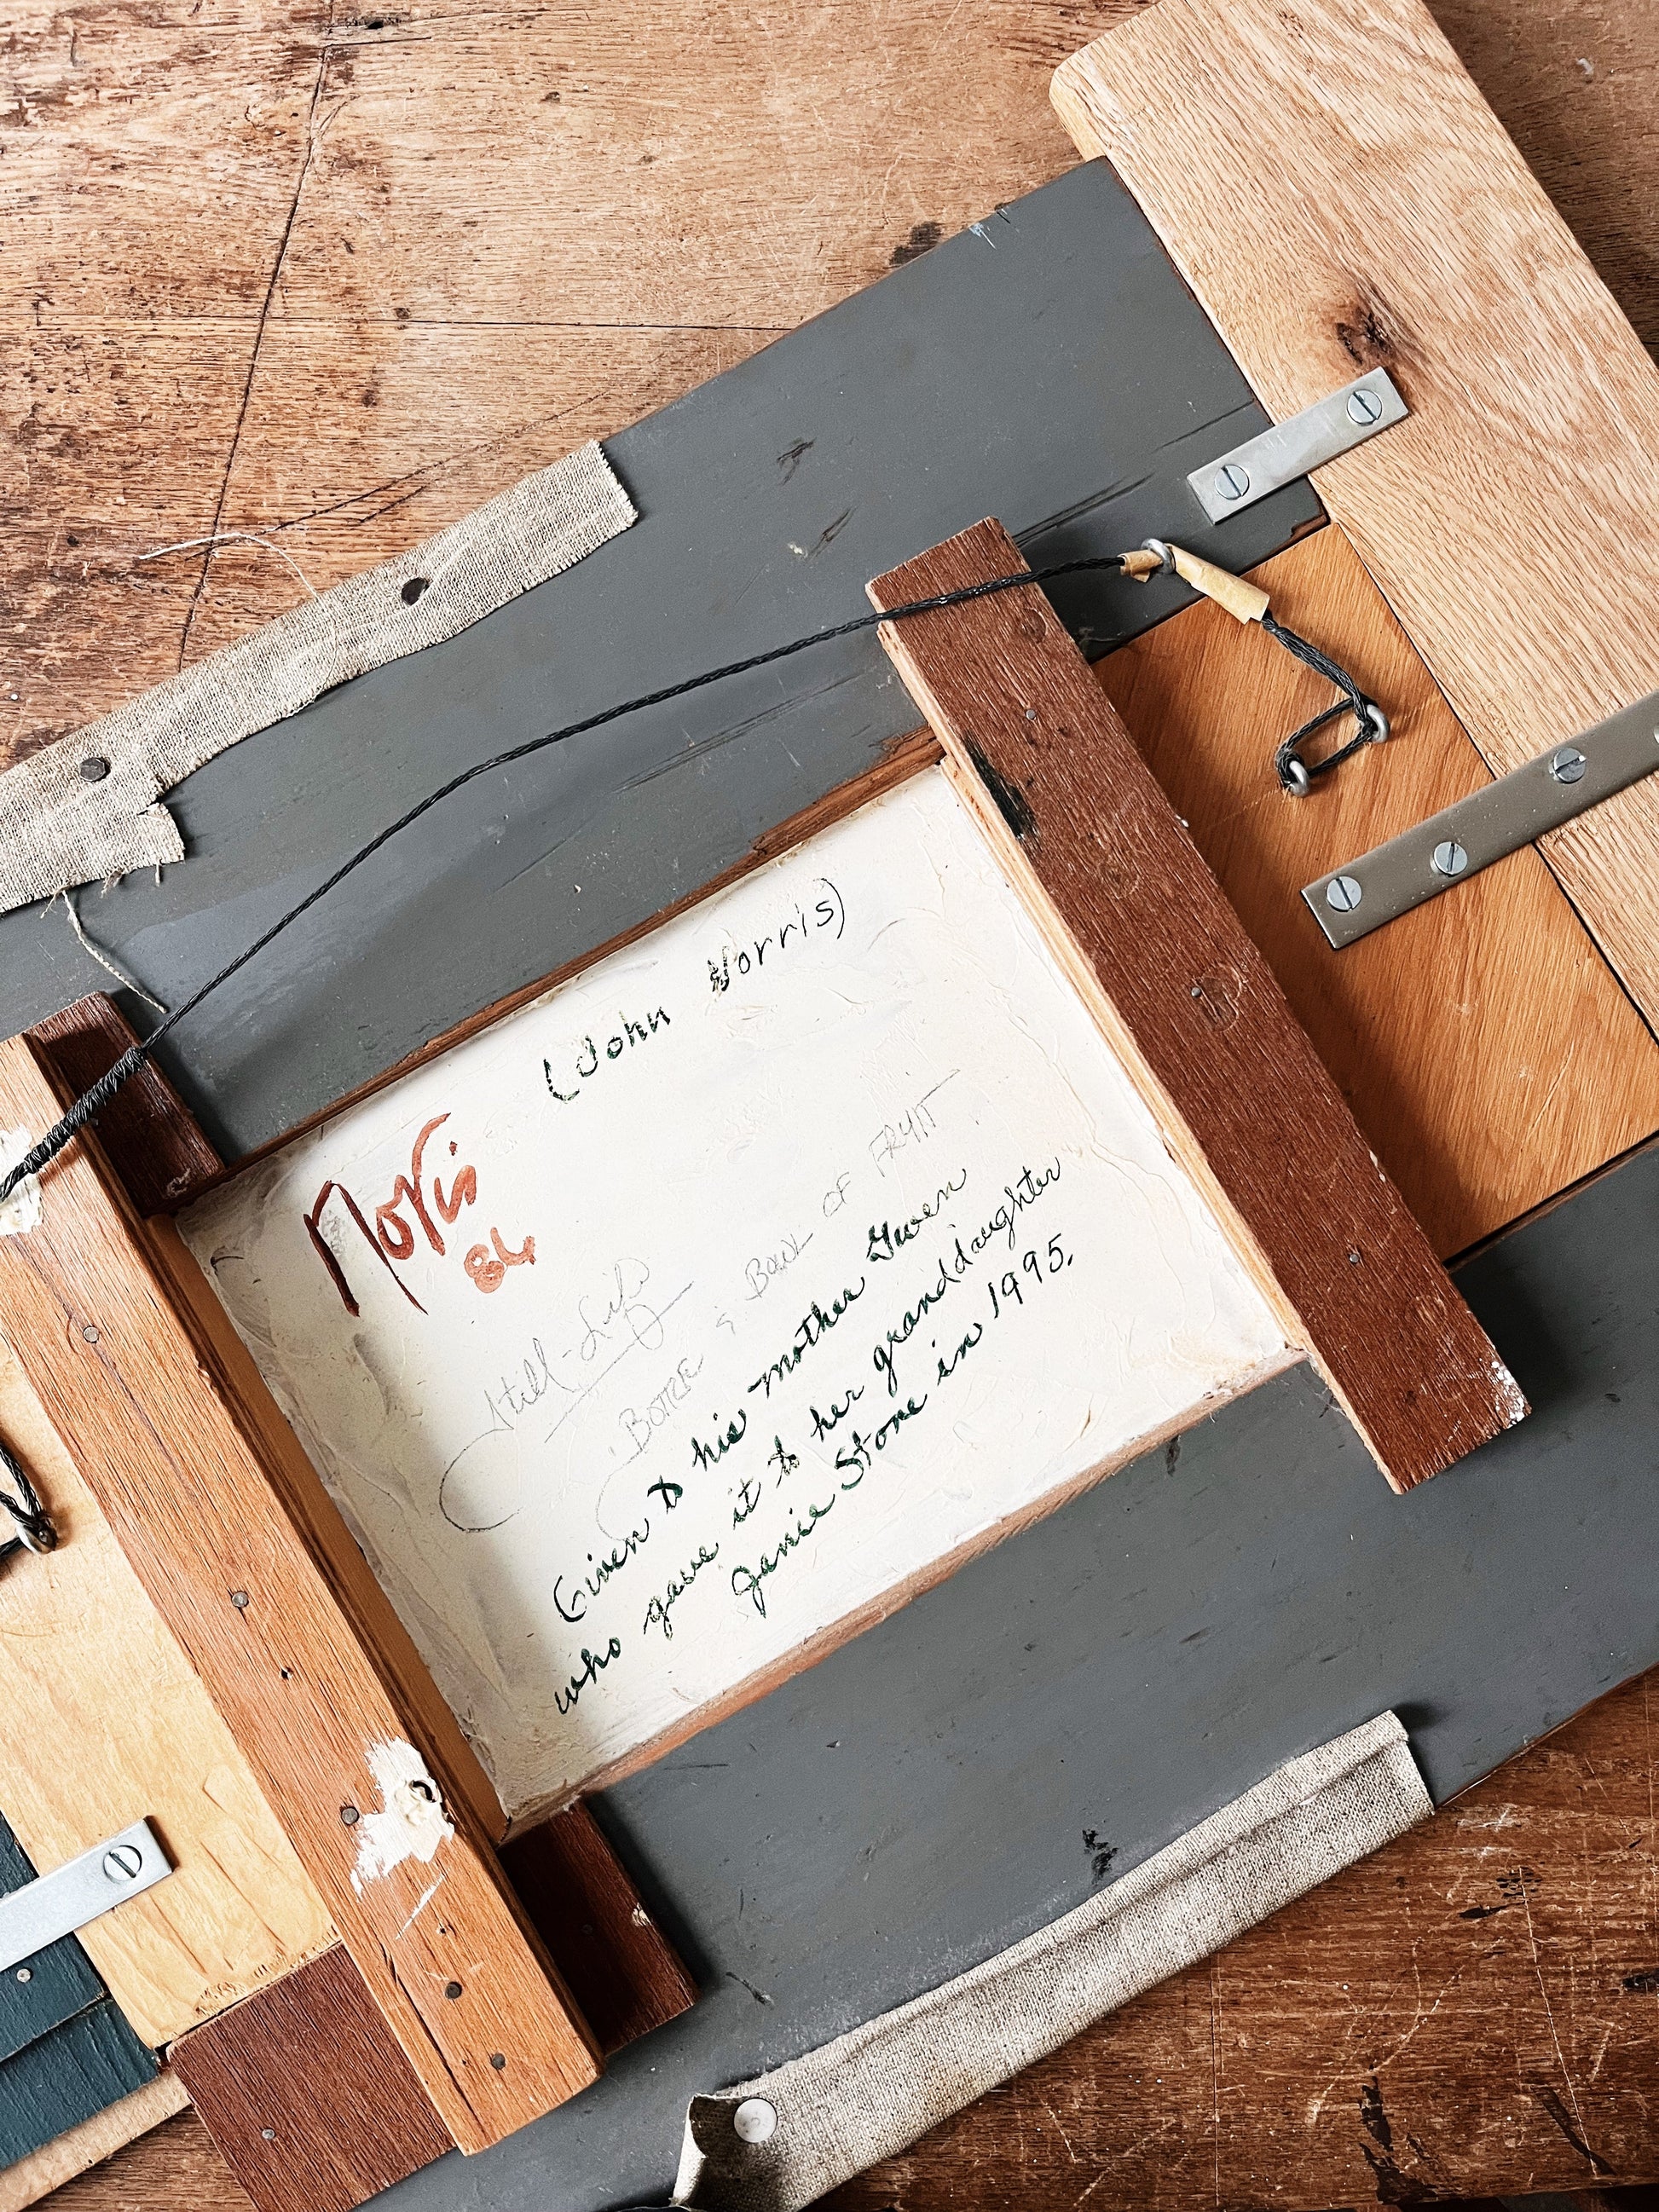 (John Norris)
Norris
84
Still-Life
BOTTLE & BOWL OF FRUIT
Given to his mother Gwen
who gave it to her granddaughter
Janie Stone in 1995.